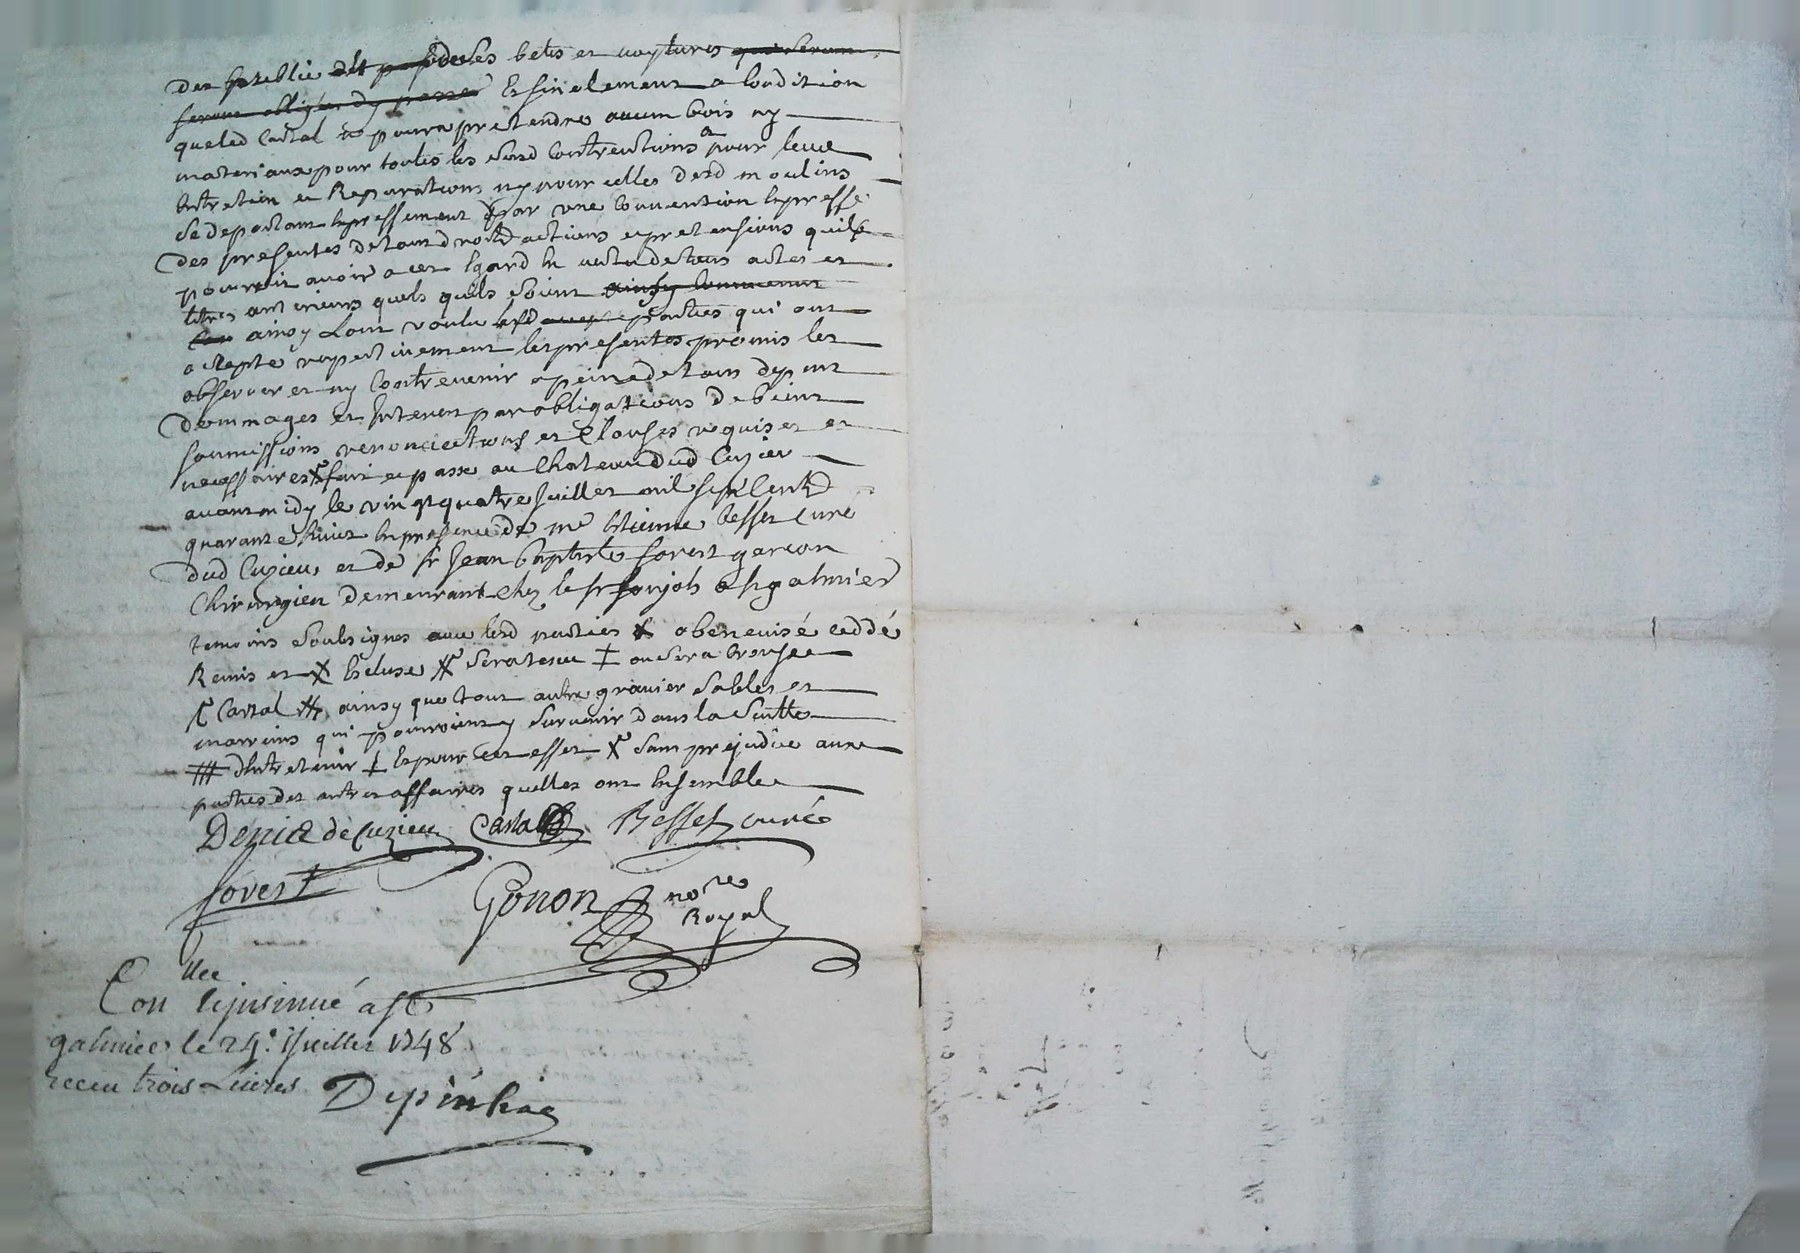 des betes et voytures
Et finalement a Condition
queled Cartal ne poura pretendre aucun bois ny
materiaux pour toutes les susd Contructions pour leur
Entretien et Reparations ny pour celles desd moulins
se departant Expressement par une Convention Expresse
des presentes de tout droits actions et pretensions quil
pourroit avoir a cet Egard En vertu de tous actes et
titres anterieurs quels quils soient ainsy Convenu
ainsy Lont voulu lesd parties qui ont
accepté respectivement les presentes promis les
observer et ny Contrevenir a peine de tous depens
dommages et Interets par obligations de biens
soumissions renonciations et Clauses requises et
necessaires fait et passé au Chateau dud Cuzieu
avant midy le vingt quatre Juillet mil sept Cents
quarante huit En presence de mre Etienne Besset Curé
dud Cuzieu, et de sr Jean Baptiste forest garcon
Chirurgien demeurant chez le sr a st galmier
temoins soubsignes avec lesd parties X abenevisé ceddé
Remis et X Ecluse X sera tenu ‡ ou sera
Cartal # ainsy que tout autre gravier sables et
marrins qui pourroient y survenir dans la suitte
# dEntretenir ‡ Et pour cet effet X sans prejudice aux
parties des autres affaires quelles ont Ensemble
Denis de Cuzieu Cartal Besset curé
forest
Gonon nore
Royal
Con llé
et insinué a st
galmier le 24e. Juillet 1748
receu trois Livres
Depinhac